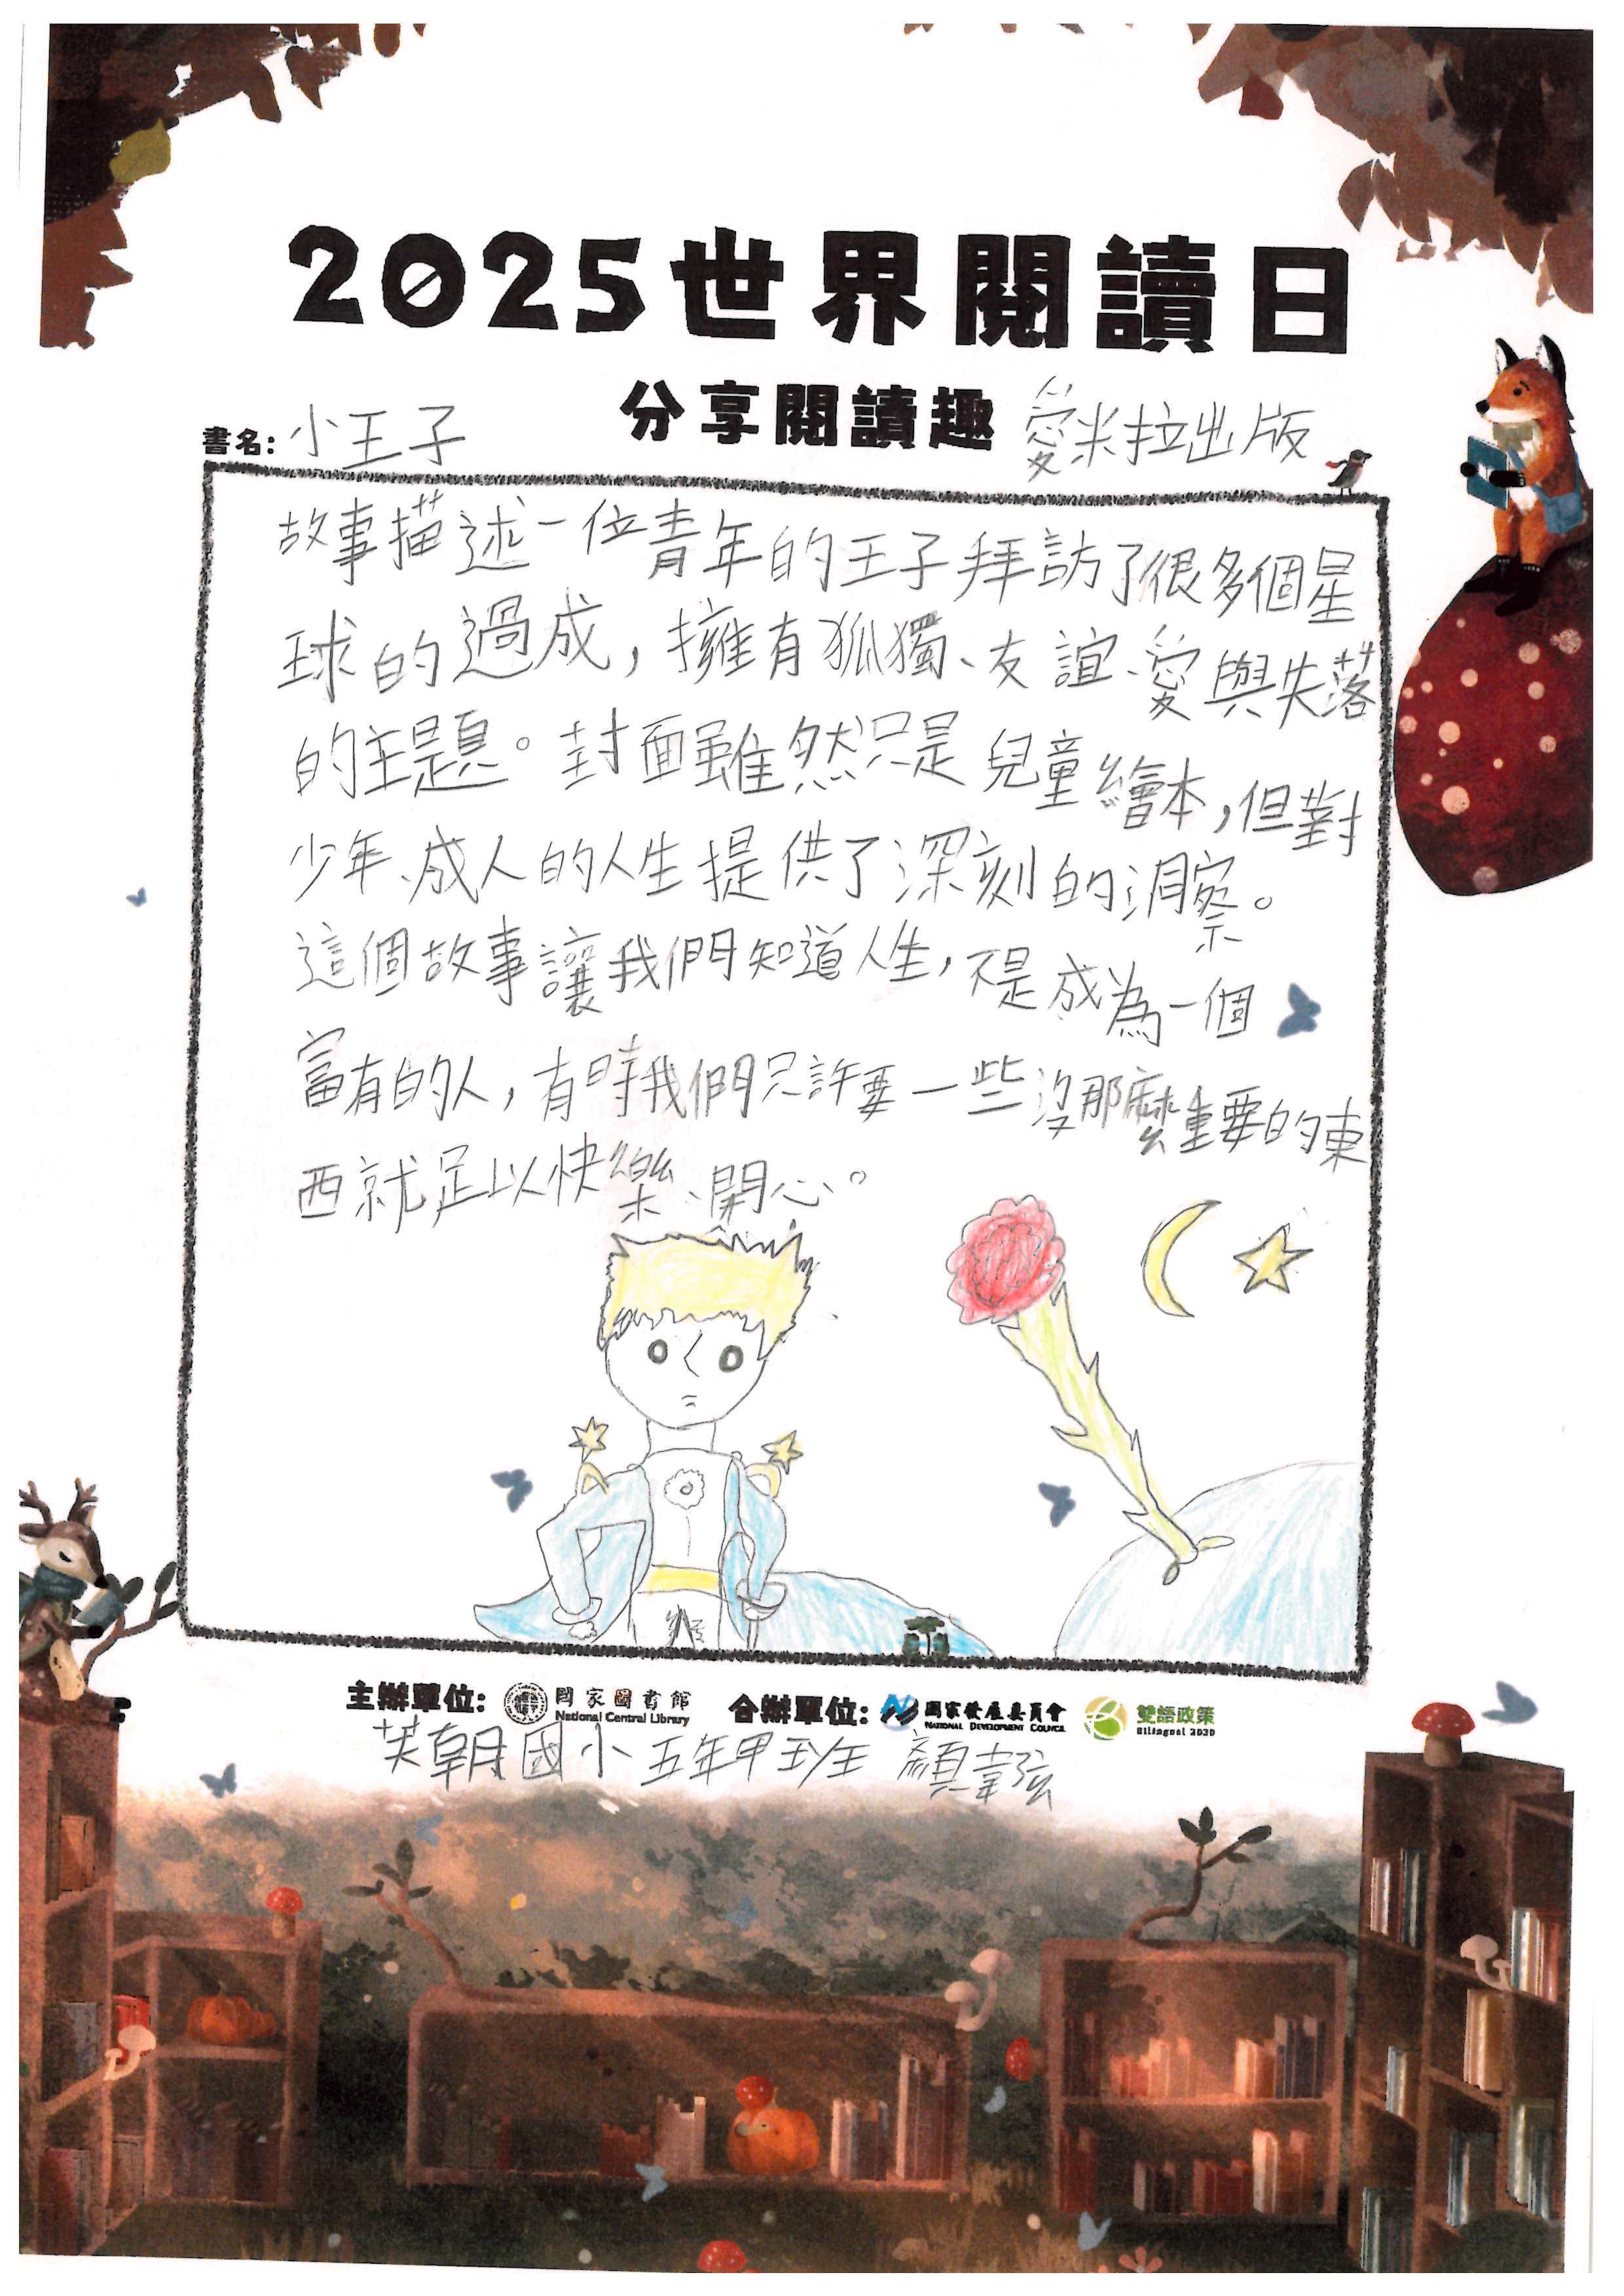 2025世界閱讀日
分享閱讀趣
書名: 小王子
愛米拉出版
故事描述一位青年的王子拜訪了很多個星
球的過成，擁有狐獨、友誼、愛與失落
的主題。封面雖然只是兒童繪本，但對
少年、成人的人生提供了深刻的洞察。
這個故事讓我們知道人生，不是成為一個
富有的人，有時我們只許要一些沒那麼重要的東
西就足以快樂、開心。
主辦單位: 國家圖書館 National Central Library 合辦單位: 國家發展委員會 NATIONAL DEVELOPMENT COUNCIL 雙語政策 Bilingual 2030
芙朝國小 五年甲班 顏韋弦